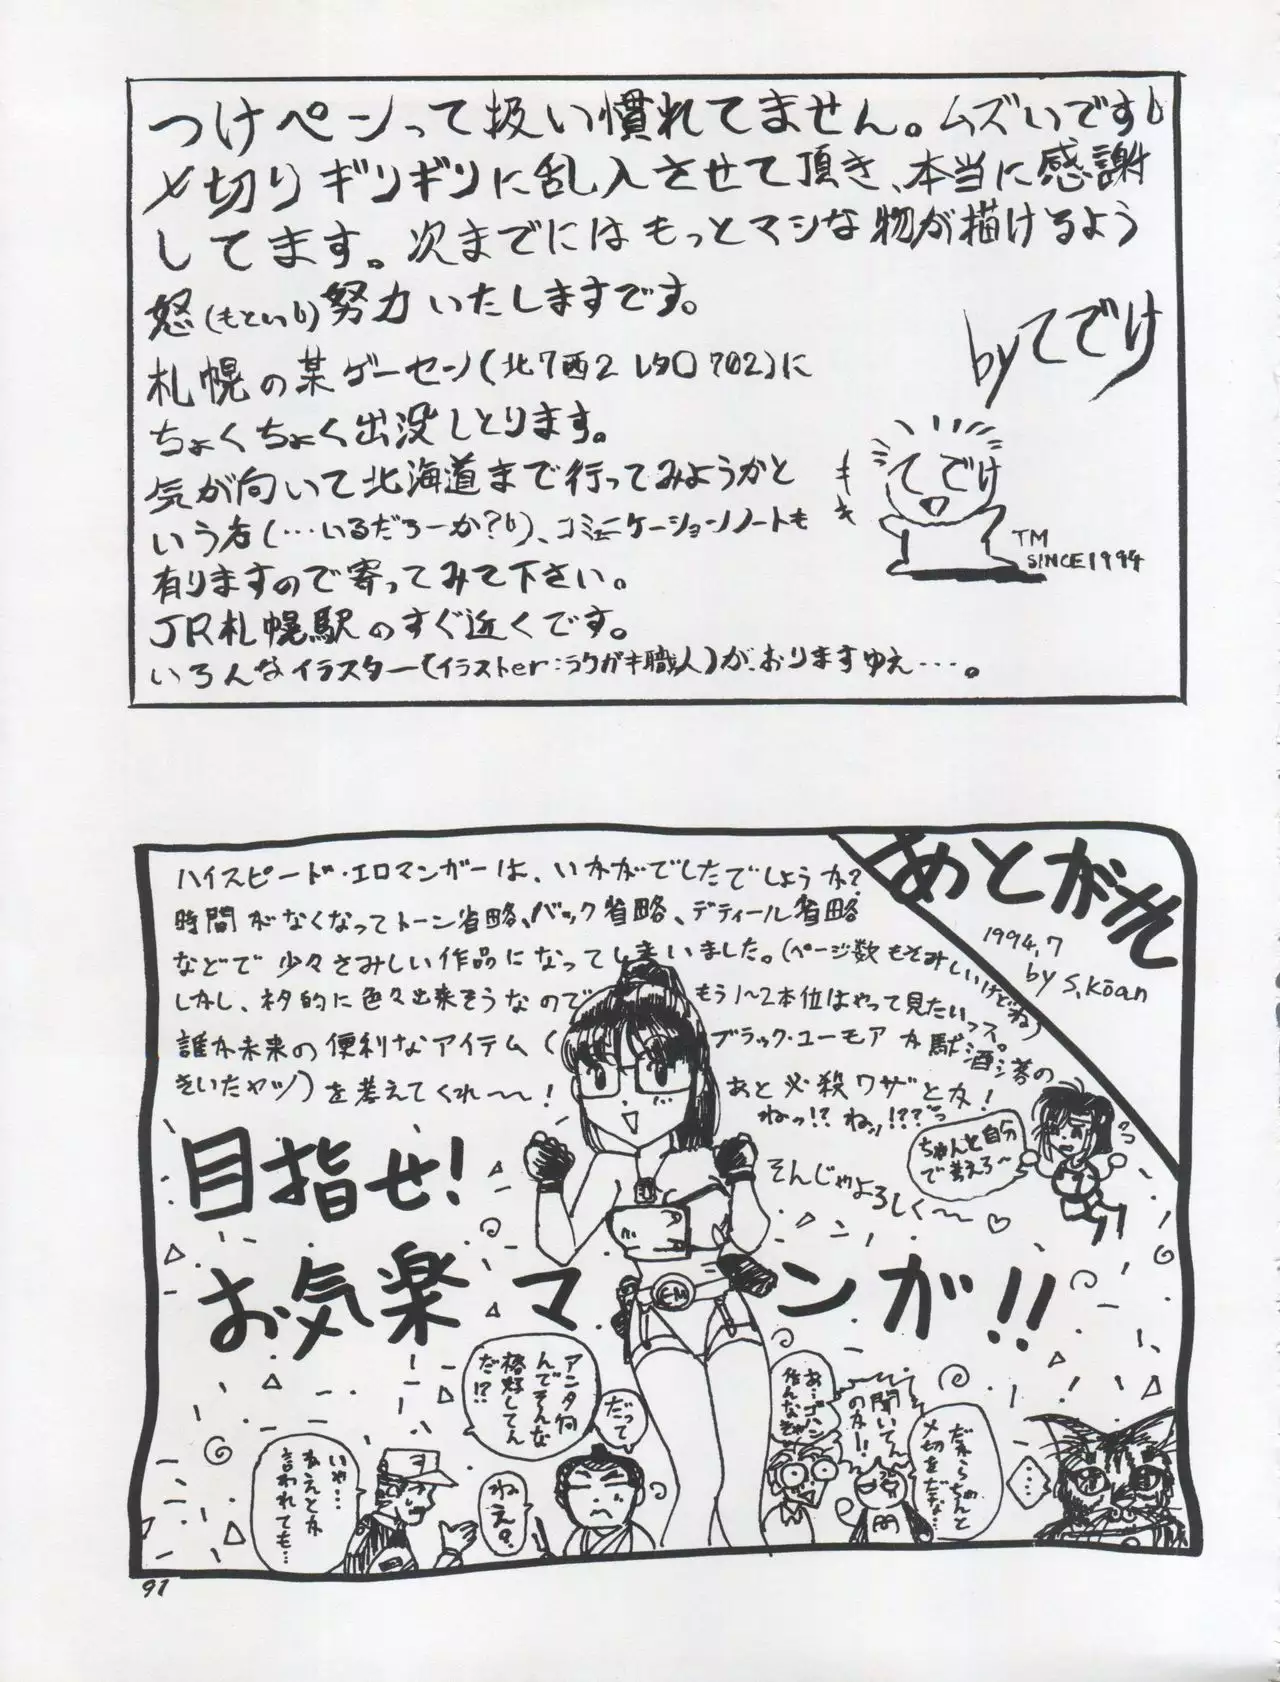 つけペンって扱い慣れてません。ムズいですb
〆切りギリギリに乱入させて頂き、本当に感謝
してます。次までにはもっとマシな物が描けるよう
怒(もといb)努力いたしますです。
byてでけ
札幌の某ゲーセン(北7西2 レタロ702)に
ちょくちょく出没しとります。
気が向いて北海道まで行ってみようかと
いう方(…いるだろーか?b)、コミュニケーションノートも
有りますので寄ってみて下さい。
JR札幌駅のすぐ近くです。
いろんなイラスター(イラストer:ラクガキ職人)が、おりますゆえ…。
てでけ
TM
SINCE1994
あとがき
1994.7
by S.Kōan
ハイスピード・エロマンガーは、いかがでしたでしょうか?
時間がなくなってトーン省略、バック省略、ディティール省略
などで少々さみしい作品になってしまいました。(ページ数もさみしいけどね)
しかし、ネタ的に色々出来そうなので もう1〜2本位はやって見たいっス。
誰か未来の便利なアイテム( ブラック・ユーモアか駄洒落の
きいたヤツ)を考えてくれ〜〜! あと必殺ワザとか!
ねっ!?ねッ!???っ
ちゃんと自分
で考えろ〜
そんじゃよろしく〜〜♡
目指せ!
お気楽マンガ!!
E-M
アンタ何
んでそんな
格好してん
だ!?
だって
ねえ?
いや…
ねえとか
言われても…
あ…ゴハン
作んなきゃ
聞いてん
のか!!
だれらちゃんと
〆切をだな…
…
91